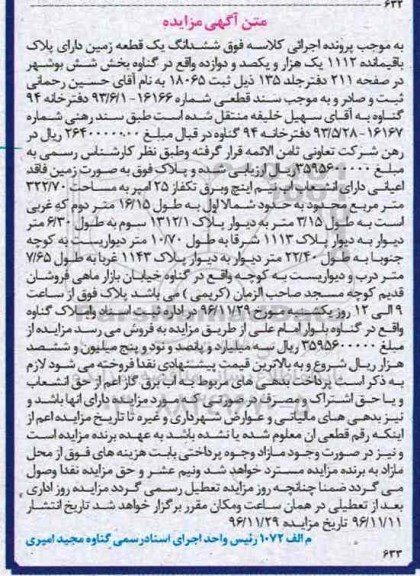 ۶۳۲
متن آگهی مزایده
به موجب پرونده اجرائی کلاسه فوق ششدانگ یک قطعه زمین دارای پلاک
باقیمانده ۱۱۱۲ یک هزار و یکصد و دوازده واقع در گناوه بخش شش بوشهر
در صفحه ۲۱۱ دفترجلد ۱۳۵ ذیل ثبت ۱۸۰۶۵ به نام آقای حسین رحمانی
ثبت و صادر و به موجب سند قطعی شماره ۱۶۱۶۶-۹۳/۶/۱ دفترخانه ۹۴
گناوه به آقای سهیل خلیفه منتقل شده است طبق سند رهنی شماره
۱۶۱۶۷-۹۳/۵/۲۸ دفترخانه ۹۴ گناوه در قبال مبلغ ۲۶۴۰۰۰۰۰۰۰ ریال در
رهن شرکت تعاونی ثامن الائمه قرار گرفته وطبق نظر کارشناس رسمی به
مبلغ ۳۵۹۵۶۰۰۰۰۰ریال ارزیابی شده و پلاک فوق به صورت زمین فاقد
اعیانی دارای انشعاب اب نیم اینچ وبرق تکفاز ۲۵ امپر به مساحت ۳۲۲/۷۰
متر مربع محدود به حدود شمالا اول به طول ۱۶/۱۵ متر دوم که غربی
است به طول ۳/۱۵ متر به دیوار پلاک ۱۳۱۲/۱ سوم به طول ۶/۳۰ متر
دیوار به دیوار پلاک ۱۱۱۳ شرقا به طول ۱۰/۷۰ متر دیواریست به کوچه
جنوبا به طول ۲۲/۴۰ متر دیوار به دیوار پلاک ۱۱۴۳ غربا به طول ۷/۶۵
متر درب و دیواریست به کوچه واقع در گناوه خیابان بازار ماهی فروشان
قدیم کوچه مسجد صاحب الزمان (کریمی ) می باشد پلاک فوق از ساعت
۹ الی ۱۲ روز یکشنبه مورخ ۹۶/۱۱/۲۹ در اداره ثبت اسناد واملاک گناوه
واقع در گناوه بلوار امام علی از طریق مزایده به فروش می رسد مزایده از
مبلغ ۳۵۹۵۶۰۰۰۰۰ ریال سه میلیارد و پانصد و نود و پنج میلیون و ششصد
هزار ریال شروع و به بالاترین قیمت پیشنهادی نقدا فروخته می شود لازم
به ذکر است پرداخت بدهی های مربوط به آب برق گاز اعم از حق انشعاب
و یا حق اشتراک و مصرف در صورتی که مورد مزایده دارای انها باشد و
نیز بدهی های مالیاتی و عوارض شهرداری و غیره تا تاریخ مزایده اعم از
اینکه رقم قطعی ان معلوم شده یا نشده باشد به عهده برنده مزایده است
و نیز در صورت وجود مازاد وجوه پرداختی بابت هزینه های فوق از محل
مازاد به برنده مزایده مسترد خواهد شد ونیم عشر و حق مزایده نقدا وصول
می گردد ضمنا چنانچه روز مزایده تعطیل رسمی گردد مزایده روز اداری
بعد از تعطیلی در همان ساعت ومکان مقرر برگزار خواهد شد تاریخ انتشار
۹۶/۱۱/۱۱ تاریخ مزایده ۹۶/۱۱/۲۹
م الف ۱۰۷۲ رئیس واحد اجرای اسنادرسمی گناوه مجید امیری
۶۳۳